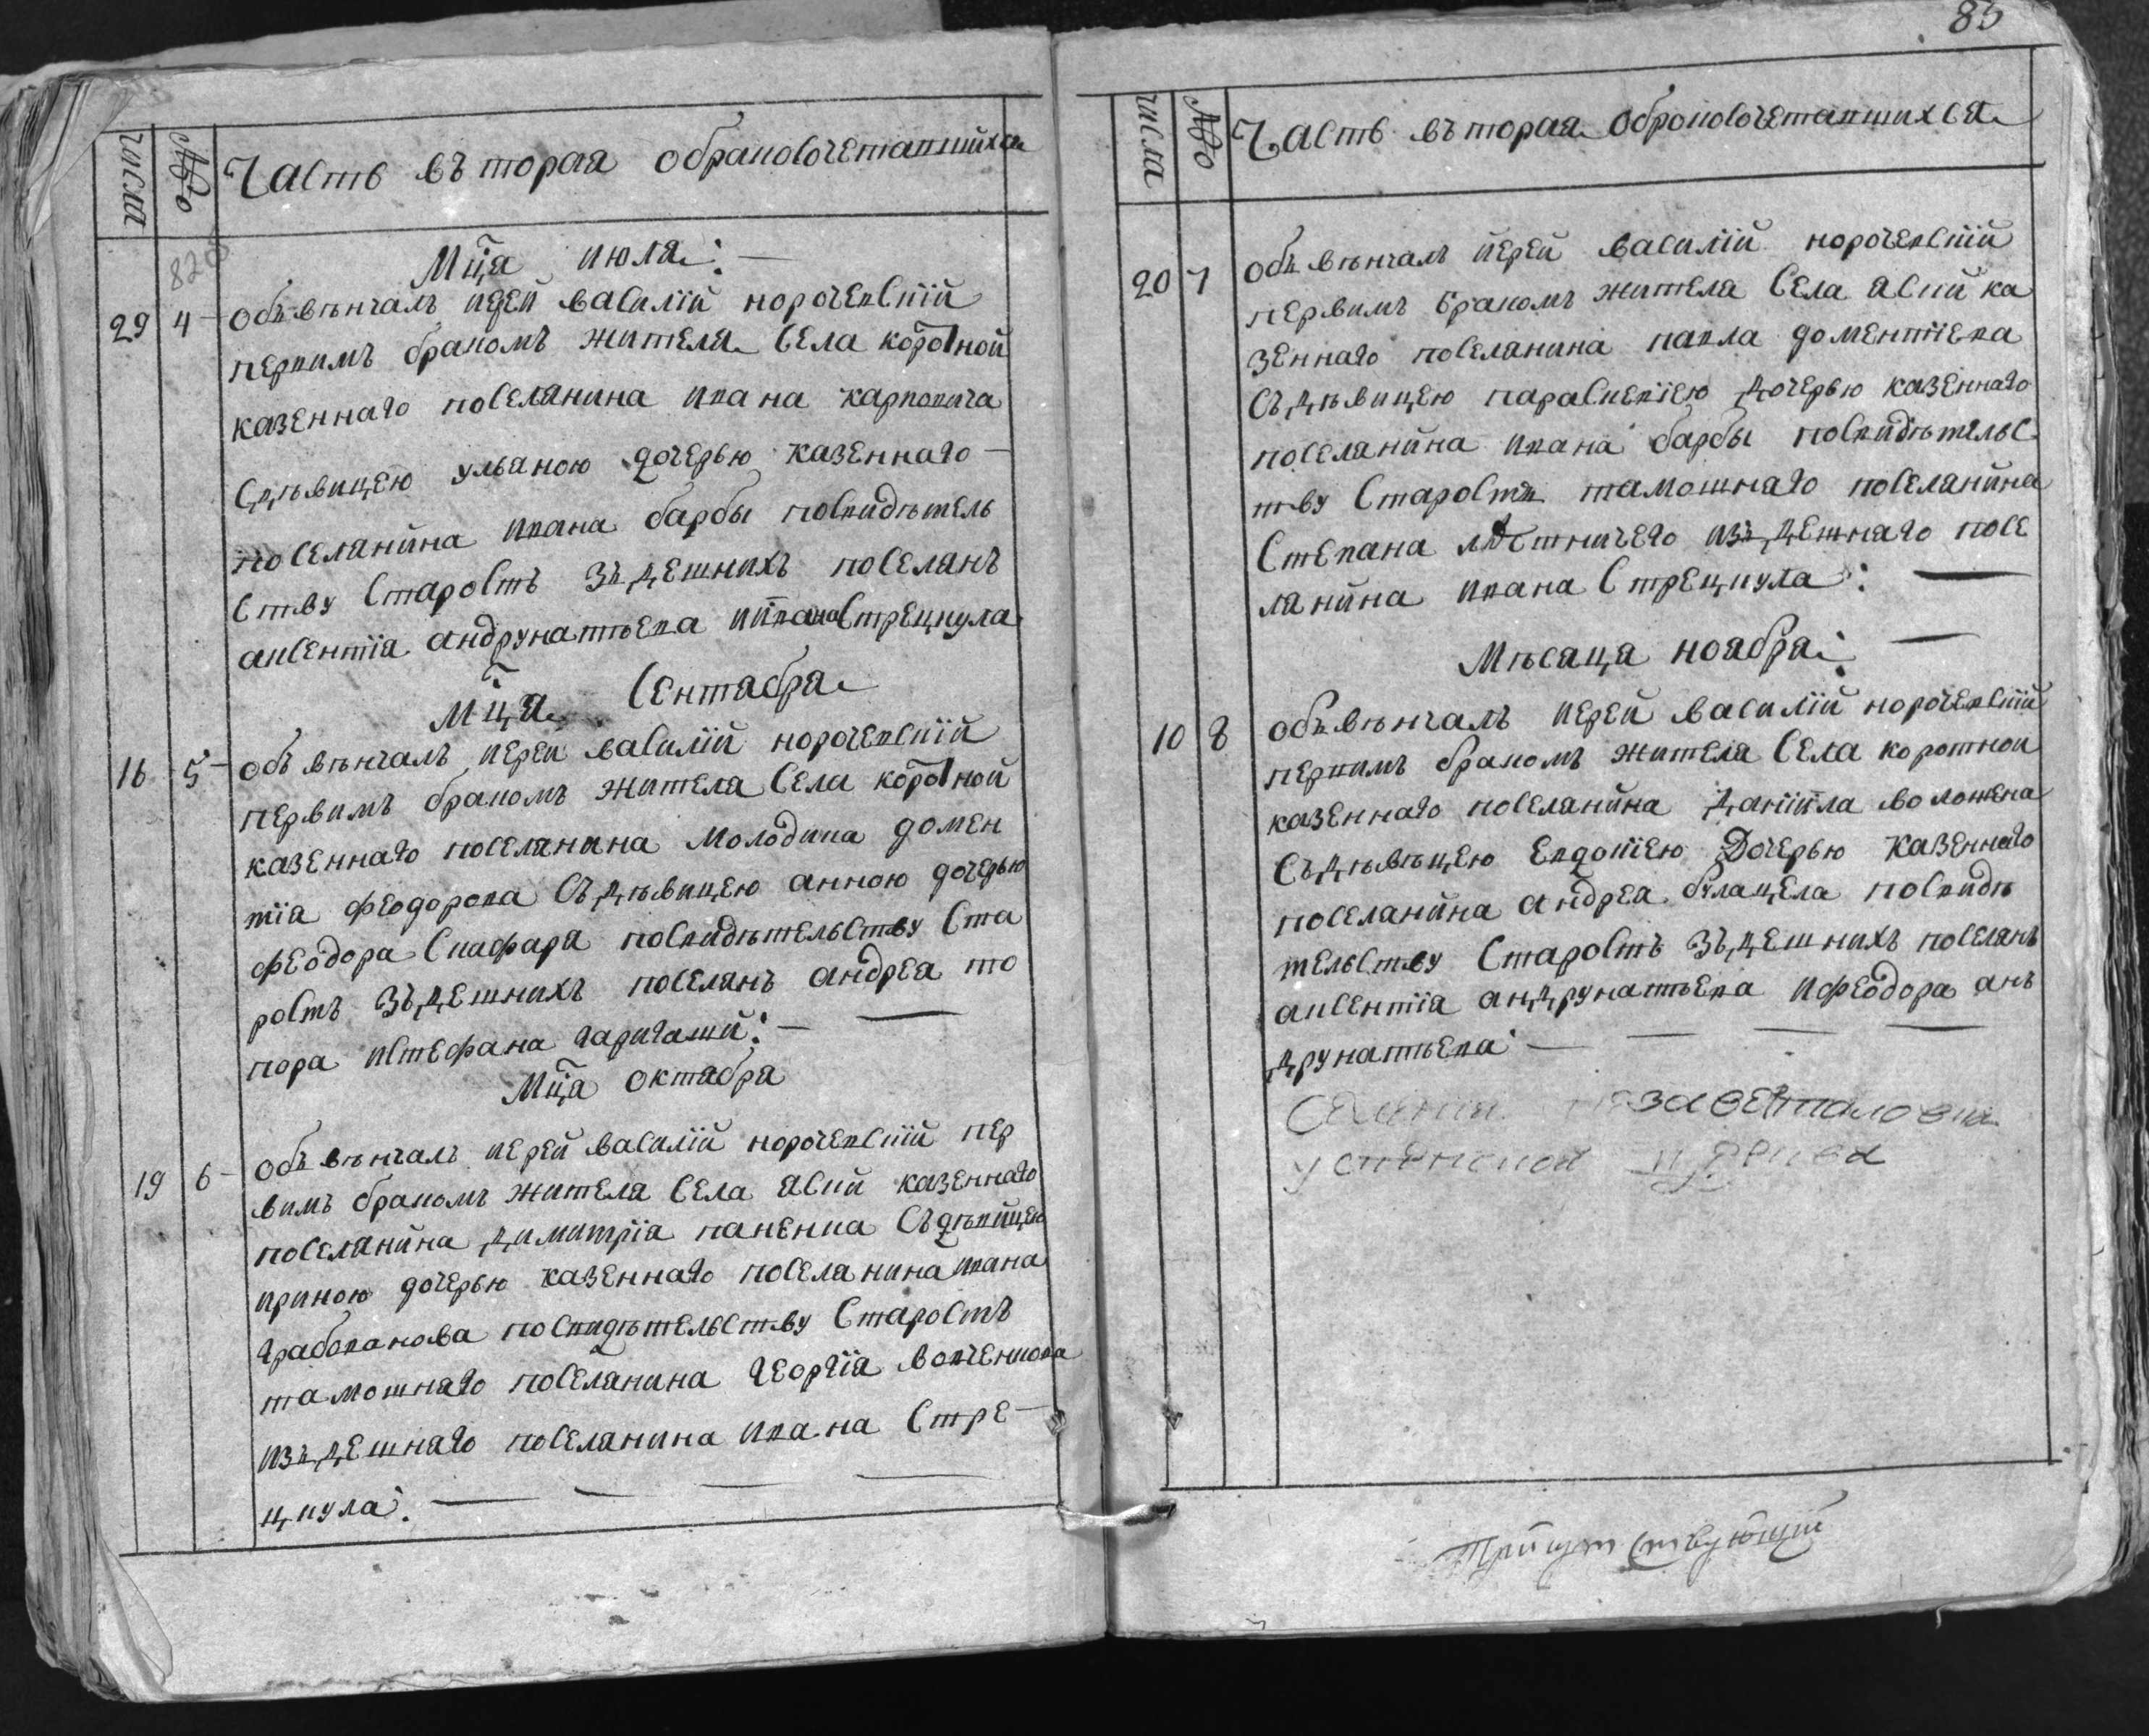 числа № Часть въторая обракосочетавшихся
Мц҃а июля:
29 4 Объвѣнчалъ иерей василїй корочевскїй
первимъ бракомъ жителя села коротной
казеннаго поселянина ивана карповича
сдѣвицею ульяною дочерью казеннаго
поселянина ивана барбы посвидѣтель
ству старостъ зъдешнихъ поселянъ
авсентїя андрунатьева иивана стрецкула
Мц҃а сентября
16 5 Объвѣнчалъ иерей василїй корочевскїй
первимъ бракомъ жителя села коротной
казеннаго поселянина молодика домен
тїя феодорова съдѣвицею анною дочерью
феодора скафаря посвидѣтельству ста
ростъ зъдешнихъ поселянъ андрея то
пора истефана гаргаший:
Мц҃а октября
19 6 Объвѣнчалъ иерей василїй корочевскїй пер
вимъ бракомъ жителя села яский казеннаго
поселянина димитрїя паненка съдѣвицею
ириною дочерью казеннаго поселянина ивана
грабованова посвидѣтельству старостъ
тамошнаго поселянина георгїя вовченкова
изъдешнаго поселянина ивана стре
цкула:
83
числа № Часть въторая обракосочетавшихся
20 7 Объвѣнчалъ иерей василїй корочевскїй
первимъ бракомъ жителя села яский ка
зеннаго поселянина павла доментїева
съдѣвицею парасцевїею дочерью казеннаго
поселянина ивана барбы посвидѣтельс
тву старостъ тамошнаго поселянина
степана лѣтничего изъдешнаго посе
лянина ивана стрецкула:
Мѣсяца ноября:
10 8 Объвѣнчалъ иерей василїй корочевскїй
первимъ бракомъ жителя села коротной
казеннаго поселянина данїила воложена
съдѣвѣцею евдокїею дочерью казеннаго
поселянина андрея булацела посвидѣ
тельству старостъ зъдешнихъ поселянъ
авсентїя андрунатьева ифеодора анъ
друнатьева
Присутствующїй